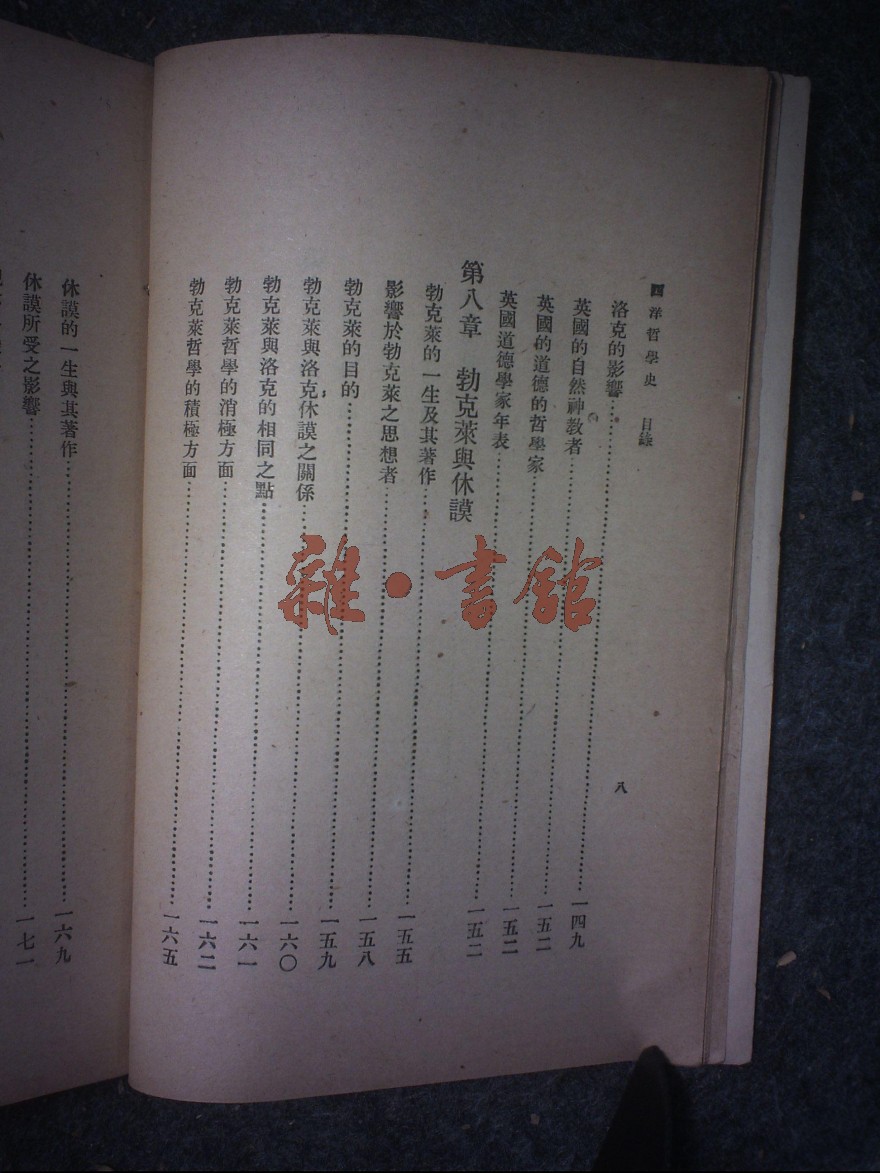 西洋哲學史 目錄
八
洛克的影響……一四九
英國的自然神教者……一五二
英國的道德的哲學家……一五二
英國道德學家年表……一五二
第八章 勃克萊與休謨
勃克萊的一生及其著作……一五五
影響於勃克萊之思想者……一五八
勃克萊的目的……一五九
勃克萊與洛克休謨之關係……一六〇
勃克萊與洛克的相同之點……一六一
勃克萊哲學的消極方面……一六二
勃克萊哲學的積極方面……一六五
休謨的一生與其著作……一六九
休謨所受之影響……一七一
雜·書館